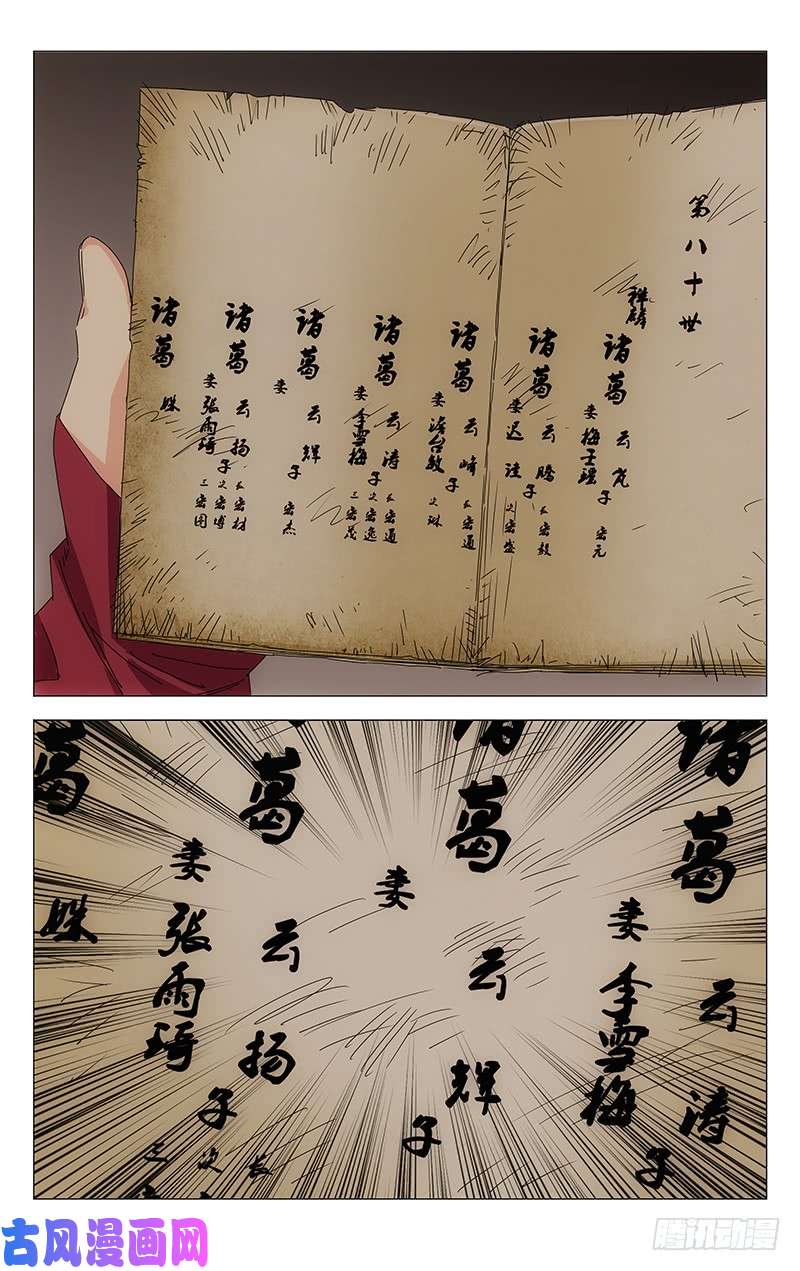 第八十世
诸葛云
妻梅
子
宏元
诸葛云腾
妻迟
子
长宏毅
次宏盛
诸葛云峰
妻澹台敏
子
长宏通
次琳
诸葛云涛
妻李雪梅
子
长宏通
次宏逸
三宏茂
诸葛云辉
妻
子
宏杰
诸葛云扬
妻张雨琦
子
长宏材
次宏博
三宏图
诸葛姝
诸葛云涛
妻李雪梅
子
诸葛云辉
妻
子
葛云扬
妻张雨琦
子
长
次
三
葛姝
古风漫画网
腾讯动漫